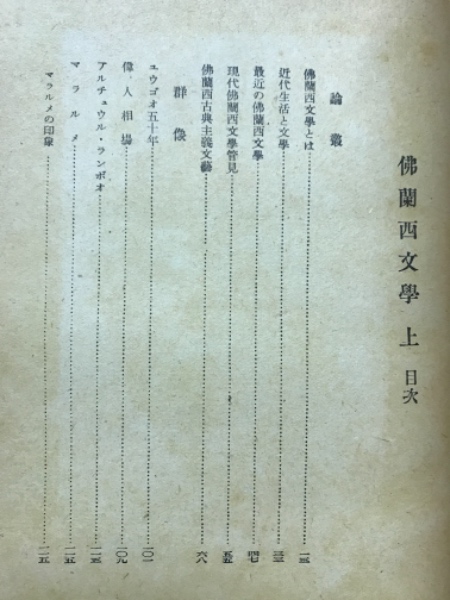 佛蘭西文學 上 目次
論叢
佛蘭西文學とは
近代生活と文學
最近の佛蘭西文學 四七
現代佛蘭西文學管見 五五
佛蘭西古典主義文藝 六八
群像
ユウゴオ五十年 一〇一
偉人相場 一〇九
アルチュウル・ランボオ
マラルメ
マラルメの印象